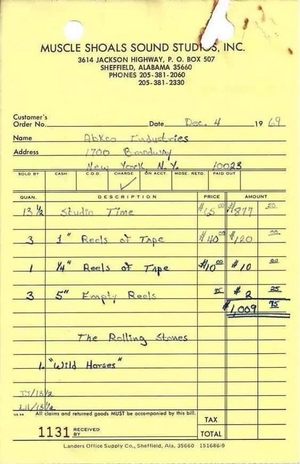 MUSCLE SHOALS SOUND STUDIOS, INC.
3614 JACKSON HIGHWAY, P. O. BOX 507
SHEFFIELD, ALABAMA 35660
PHONES 205-381-2060
205-381-2330
Customer's
Order No. Date Dec. 4 1969
Name Abkco Industries
Address 1700 Broadway
New York N.Y. 10023
SOLD BY CASH C.O.D. CHARGE ON ACCT. MDSE. RETD. PAID OUT
QUAN. DESCRIPTION PRICE AMOUNT
13 1/2 Studio Time $65 00 $877 50
3 1" Reels of Tape $40 00 $120 00
1 1/4" Reels of Tape $10 00 $10 00
3 5" Empty Reels $2 25
$1,009 75
The Rolling Stones
1. "Wild Horses"
All claims and returned goods MUST be accompanied by this bill.
1131 RECEIVED BY
TAX
TOTAL
Landers Office Supply Co., Sheffield, Ala. 35660 151686/9